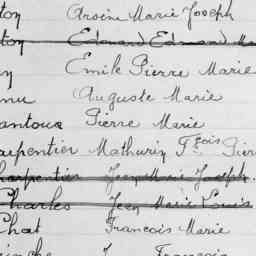 ton Arsène Marie Joseph
ton Edmond Edmond Ma
Emile Pierre Marie
nu Auguste Marie
antoux Pierre Marie
arpentier Mathurin Fçois Pier
harpentier Jean Marie Joseph
Charles Jean Marie Louis
Chat François Marie
François